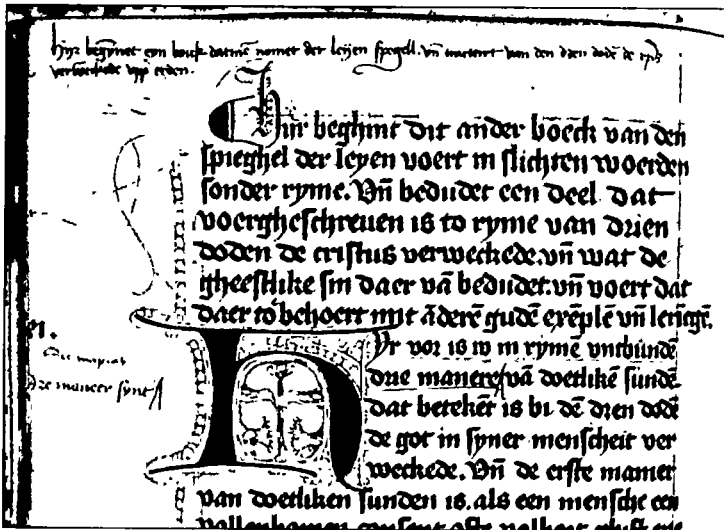 Hijr begynnet eyn boick datmen nomet der leyen spegell. vn̄ tracteirt van den dren dodē de crūs
verweckede vpp erden.
Hir beghint dit ander boeck van den
spieghel der leyen voert in slichten woerden
sonder ryme. Vn̄ bedudet een deel dat
voergheschreuen is to ryme van drien
doden de cristus verweckede. vn̄ wat de
gheestlike sin daer vā bedudet. vn̄ voert dat
daer to behoert mit āderē gudē exēplē vn̄ lerīgē.
Hyr vor is to in rymē vntbūdē
drie manere vā doetlikē sundē
dat betekēt is bi dē dren dodē
de got in syner menscheit ver
weckede. Vn̄ de erste manier
Dre maneer synt
van doetliken sunden is. als een mensche een